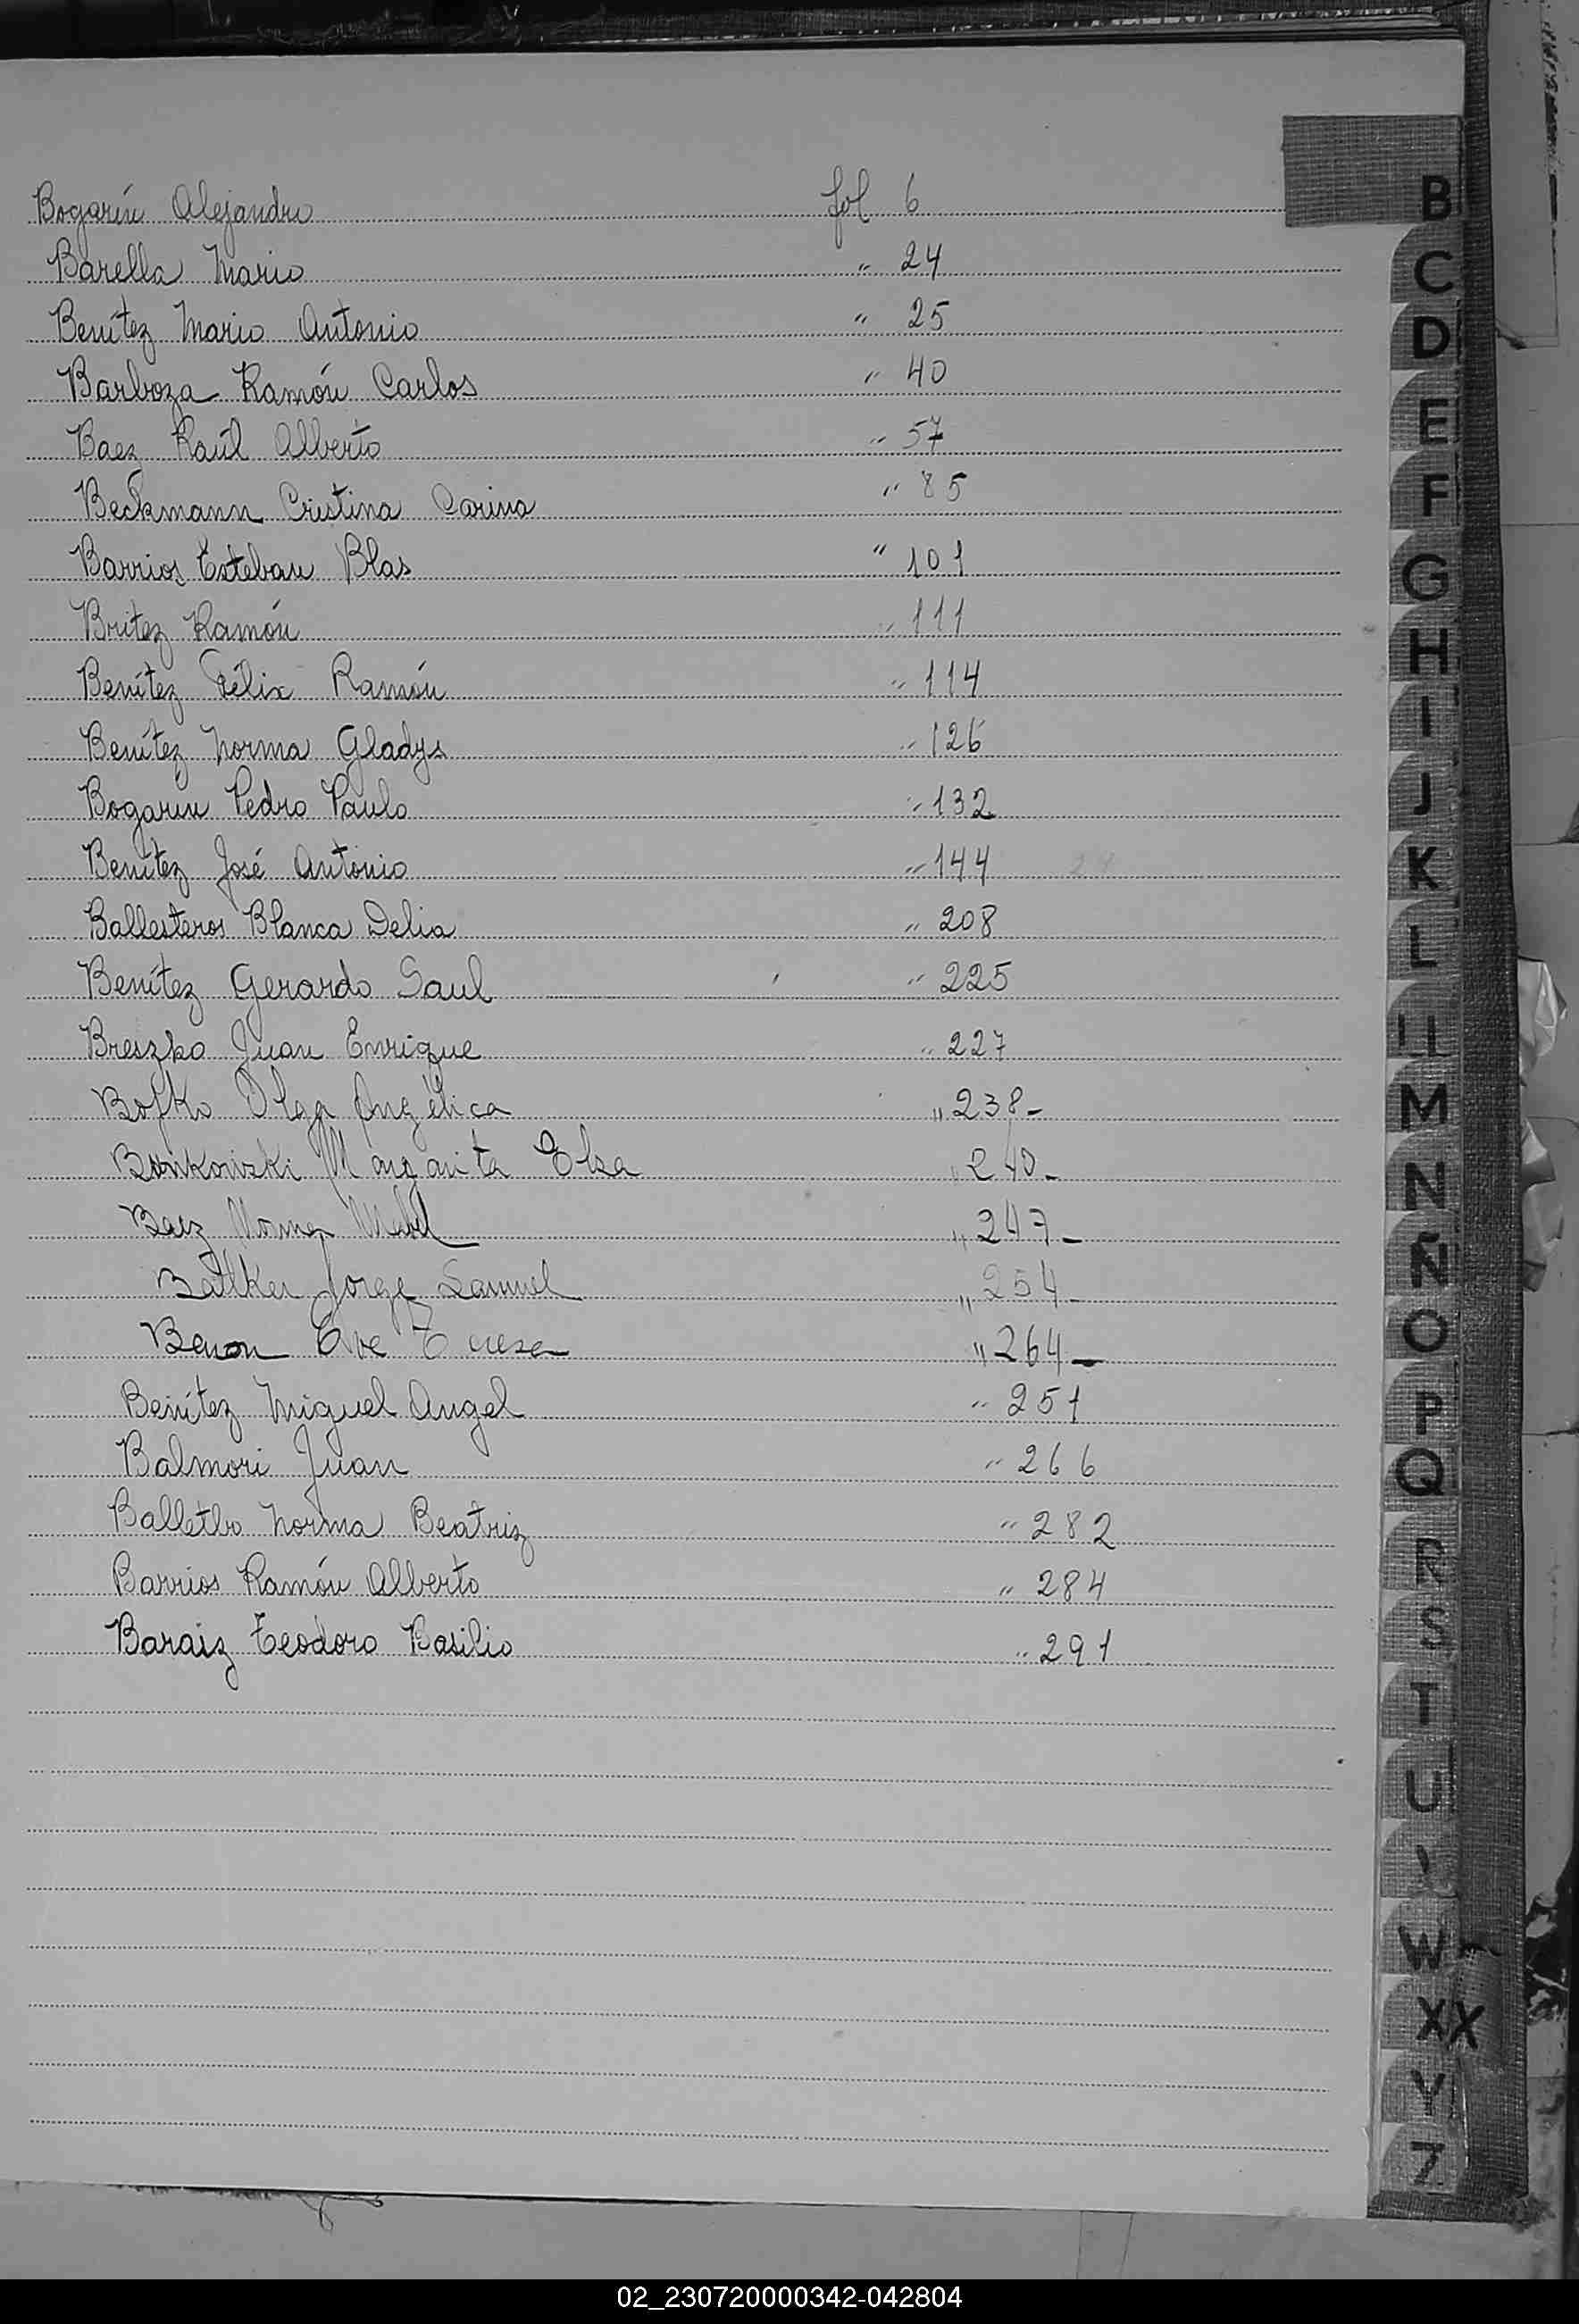 Bogarín Alejandro fol 6
Barella Mario " 24
Benítez Mario Antonio " 25
Barboza Ramón Carlos " 40
Baez Raúl Alberto " 57
Beckmann Cristina Carina " 85
Barrios Esteban Blas " 101
Britez Ramón " 111
Benítez Félix Ramón " 114
Benítez Norma Gladys " 126
Bogarin Pedro Paulo " 132
Benítez José Antonio " 144
Ballesteros Blanca Delia " 208
Benítez Gerardo Saul " 225
Breszko Juan Enrique " 227
Bofko Olga Angélica " 238-
Margarita Elsa " 240-
Baez Norma Mabel " 247-
Jorge Samuel " 254-
" 264-
Benítez Miguel Angel " 251
Balmori Juan " 266
Balletbo Norma Beatriz " 282
Barrios Ramón Alberto " 284
Baraiz Teodoro Basilio " 291
B
C
D
E
F
G
H
I
J
K
L
LL
M
N
Ñ
O
P
Q
R
S
T
U
W
X X
Y
Z
02_230720000342-042804